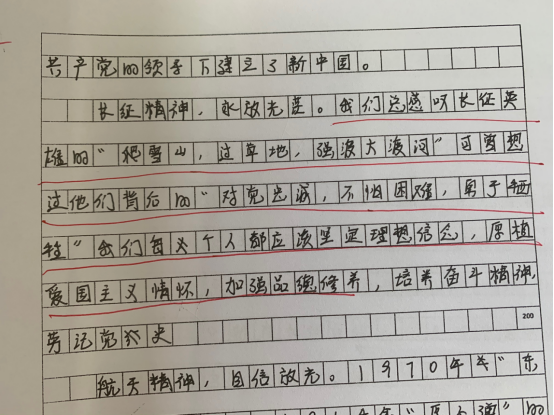 共产党的领导下建立了新中国。
长征精神,永放光芒。我们总感叹长征英
雄的“爬雪山,过草地,强渡大渡河”可曾想
过他们背后的“对党忠诚,不怕困难,勇于牺
牲”我们每义个人都应该坚定理想信念,厚植
爱国主义情怀,加强品德修养,培养奋斗精神,
劳记党
史
200
航天精神,自信放光。1970年
“东